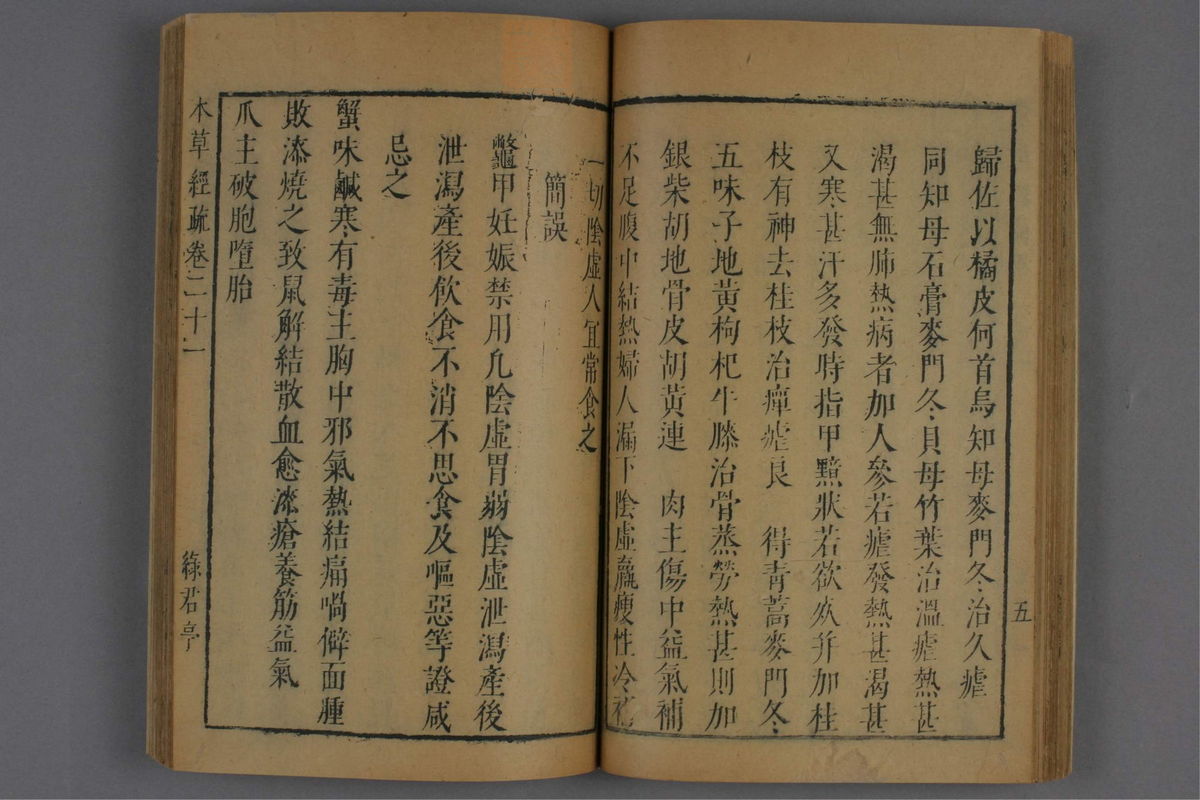 歸佐以橘皮何首烏知母麥門冬治久瘧
同知母石膏麥門冬貝母竹葉治溫瘧熱甚
渴甚無肺熱病者加人參若瘧發熱甚渴甚
又寒甚汗多發時指甲黯狀若欲死并加桂
枝有神去桂枝治癉瘧良　得青蒿麥門冬
五味子地黃枸杞牛膝治骨蒸勞熱甚則加
銀柴胡地骨皮胡黃連　肉主傷中益氣補
不足腹中結熱婦人漏下陰虛羸瘦性冷
一切陰虛人宜常食之
五
簡誤
鼈甲妊娠禁用凡陰虛胃弱陰虛泄瀉產後
泄瀉產後飲食不消不思食及嘔惡等證咸
忌之
蟹味鹹寒有毒主胸中邪氣熱結痛喎僻面腫
敗漆燒之致鼠解結散血愈漆瘡養筋益氣
爪主破胞墮胎
本草經疏卷二十一
綠君亭